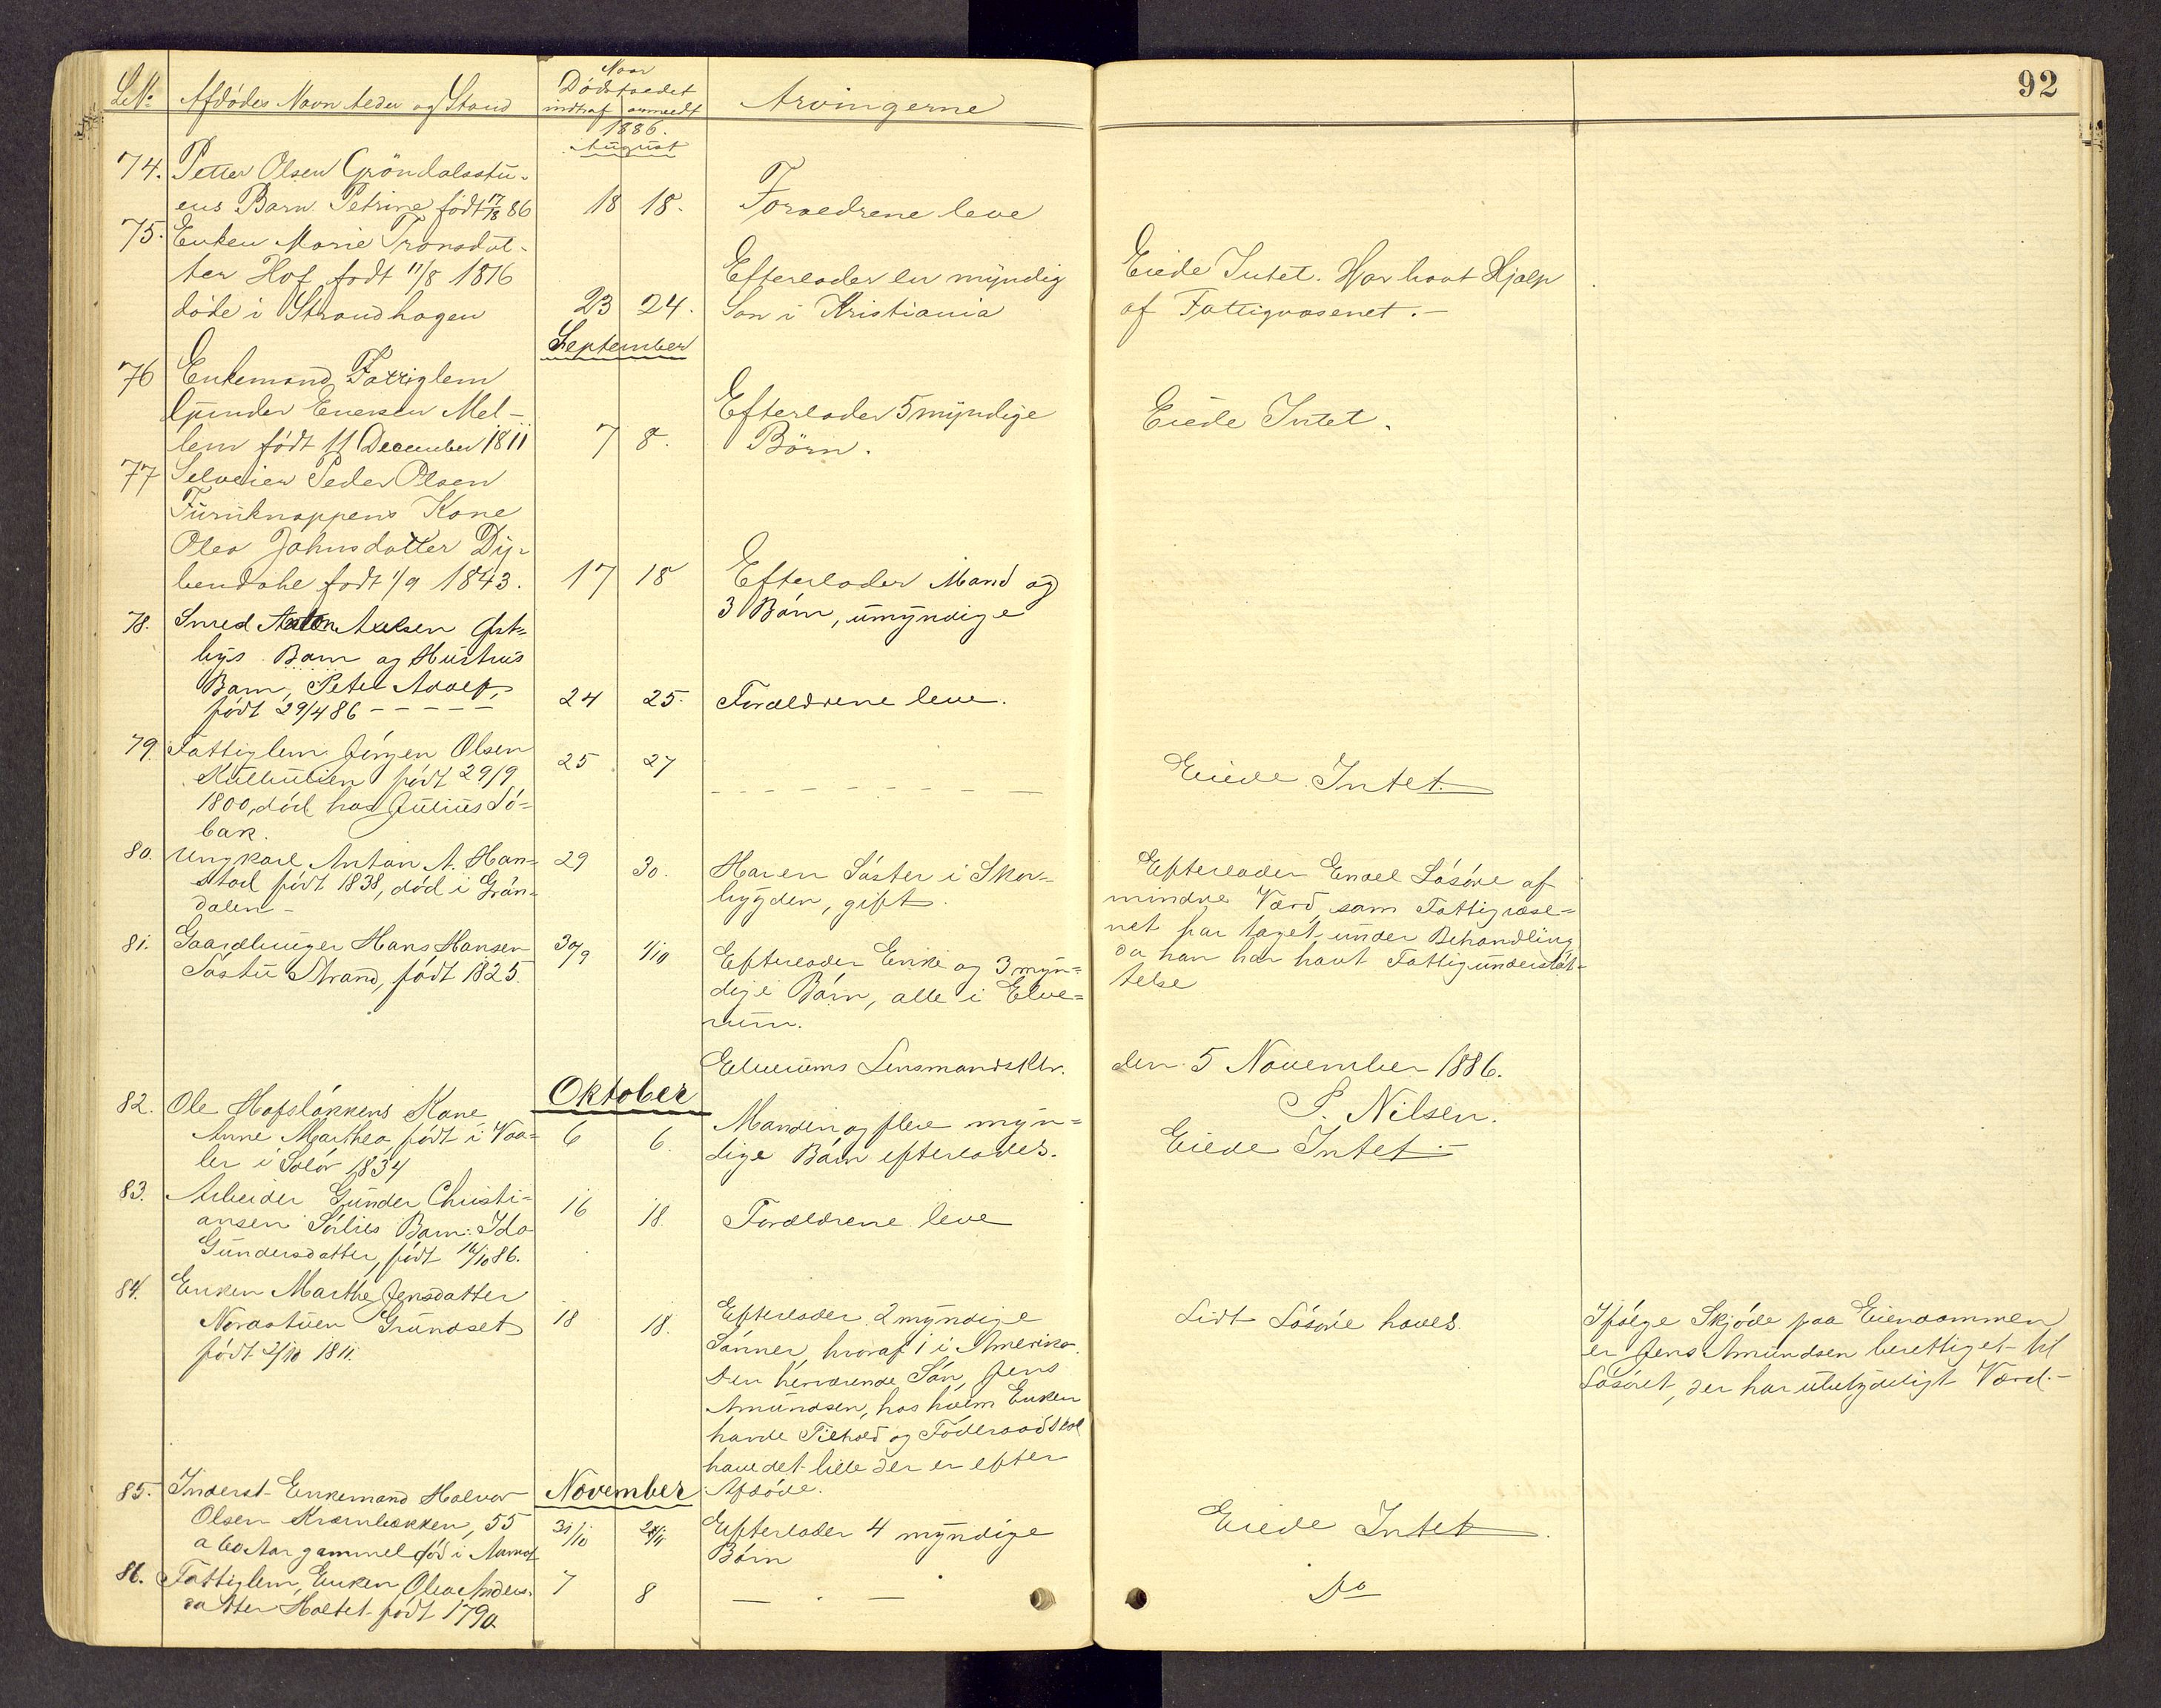 92
LNo Afdødes Navn Alder og Stand Naar Dødsfaldet indtraf anmeldt Arvingerne
1886.
August
74. Petter Olsen Gröndalsstu-
ens Barn Petrine født 17/8 86 18 18. Forældrene leve
75. Enken Marie Tronsdat-
ter Hof født 11/8 1816 Efterlader en myndig Eiede Intet. Har havt Hjælp
døde i Strandhagen 23 24. Søn i Kristiania af Fattigvæsenet.-
September
76 Enkemand, Fattiglem
Gunder Enersen Mel- Efterlader 5 myndige Eiede Intet.
lem født 11 December 1811 7 8. Börn.
77 Selveier Peder Olsen
Furuknappens Kone
Olea Johnsdatter Dy-
bendahl født 1/9 1843. 17 18 Efterlader Mand og
3 Børn, umyndige
78. Smed Anton Axelsen Øst-
bys Barn og Hustrus
Barn, Peter Adolf,
født 29/4 86 - - - - - 24 25. Forældrene leve.
79. Fattiglem Jörgen Olsen 25 27 Eiede Intet.
født 29/9 - - - - - - - - -
1800, död hos Julius Lö-
bak.
80. Ungkarl Anton A. Han- 29 30. Har en Søster i Skov- Efterlader Endel Løsøre af
stad født 1838, død i Grön- bygden, gift. mindre Værd, som Fattigvæse-
dalen - net har taget under Behandling
81. Gaardbruger Hans Hansen 30/9 1/10 Efterlader Enke og 3 myn- da han har havt Fattigunderstöt-
Søstu Strand, født 1825. dige Børn, alle i Elve- telse
rum.
Elverums Lensmandsktr. den 5 November 1886.
P. Nilsen.
Oktober
82. Ole Hofsløkkens Kone Manden og flere myn-
Anne Marthea født i Vaa- 6 6. dige Børn efterlades. Eiede Intet.-
ler i Solør 1834
83. Arbeider Gunder Christi- 16 18. Forældrene leve
ansen Sörlies Barn: Ida
Gundersdatter, født 16/10 86.
84. Enken Marthe Jensdatter
Nordstuen Grundset 18 18. Efterlader 2 myndige Lidt Løsøre haves. Ifølge Skjøde paa Eiendommen
født 2/10 1811. Sønner, hvoraf 1 i Amerika. er Jens Amundsen berettiget til
Den herværende Søn, Jens Løsøret, der har ubetydeligt Værd.-
Amundsen, hos hvem Enken
havde Tilhold og Föderaad skal
have det lille der er efter
Afdøde.
November
85. Inderst Enkemand Halvor
Olsen Kværnbækken, 55 31/10 2/11 Efterlader 4 myndige Eiede Intet.
a 60 Aar gammel død i Aamot Børn
86. Fattiglem, Enken Olea Anders- 7 8 - . - Do
datter Holtet født 1790